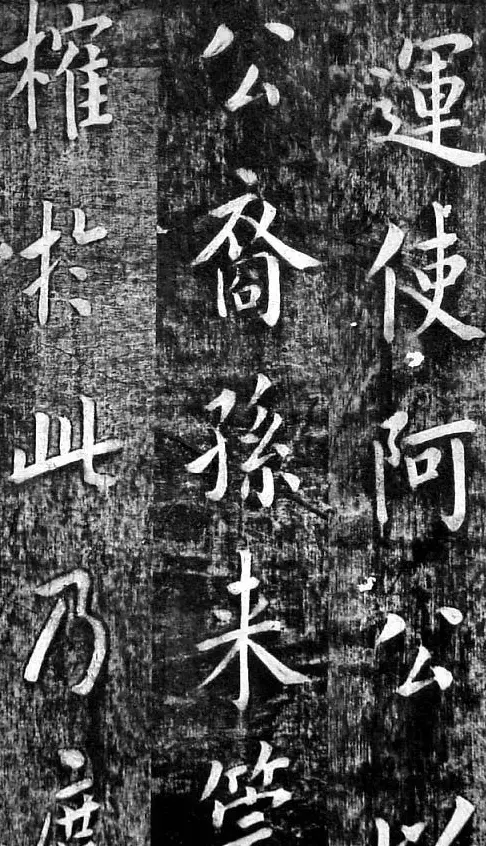 運使阿公以
公裔孫来管
榷於此乃度